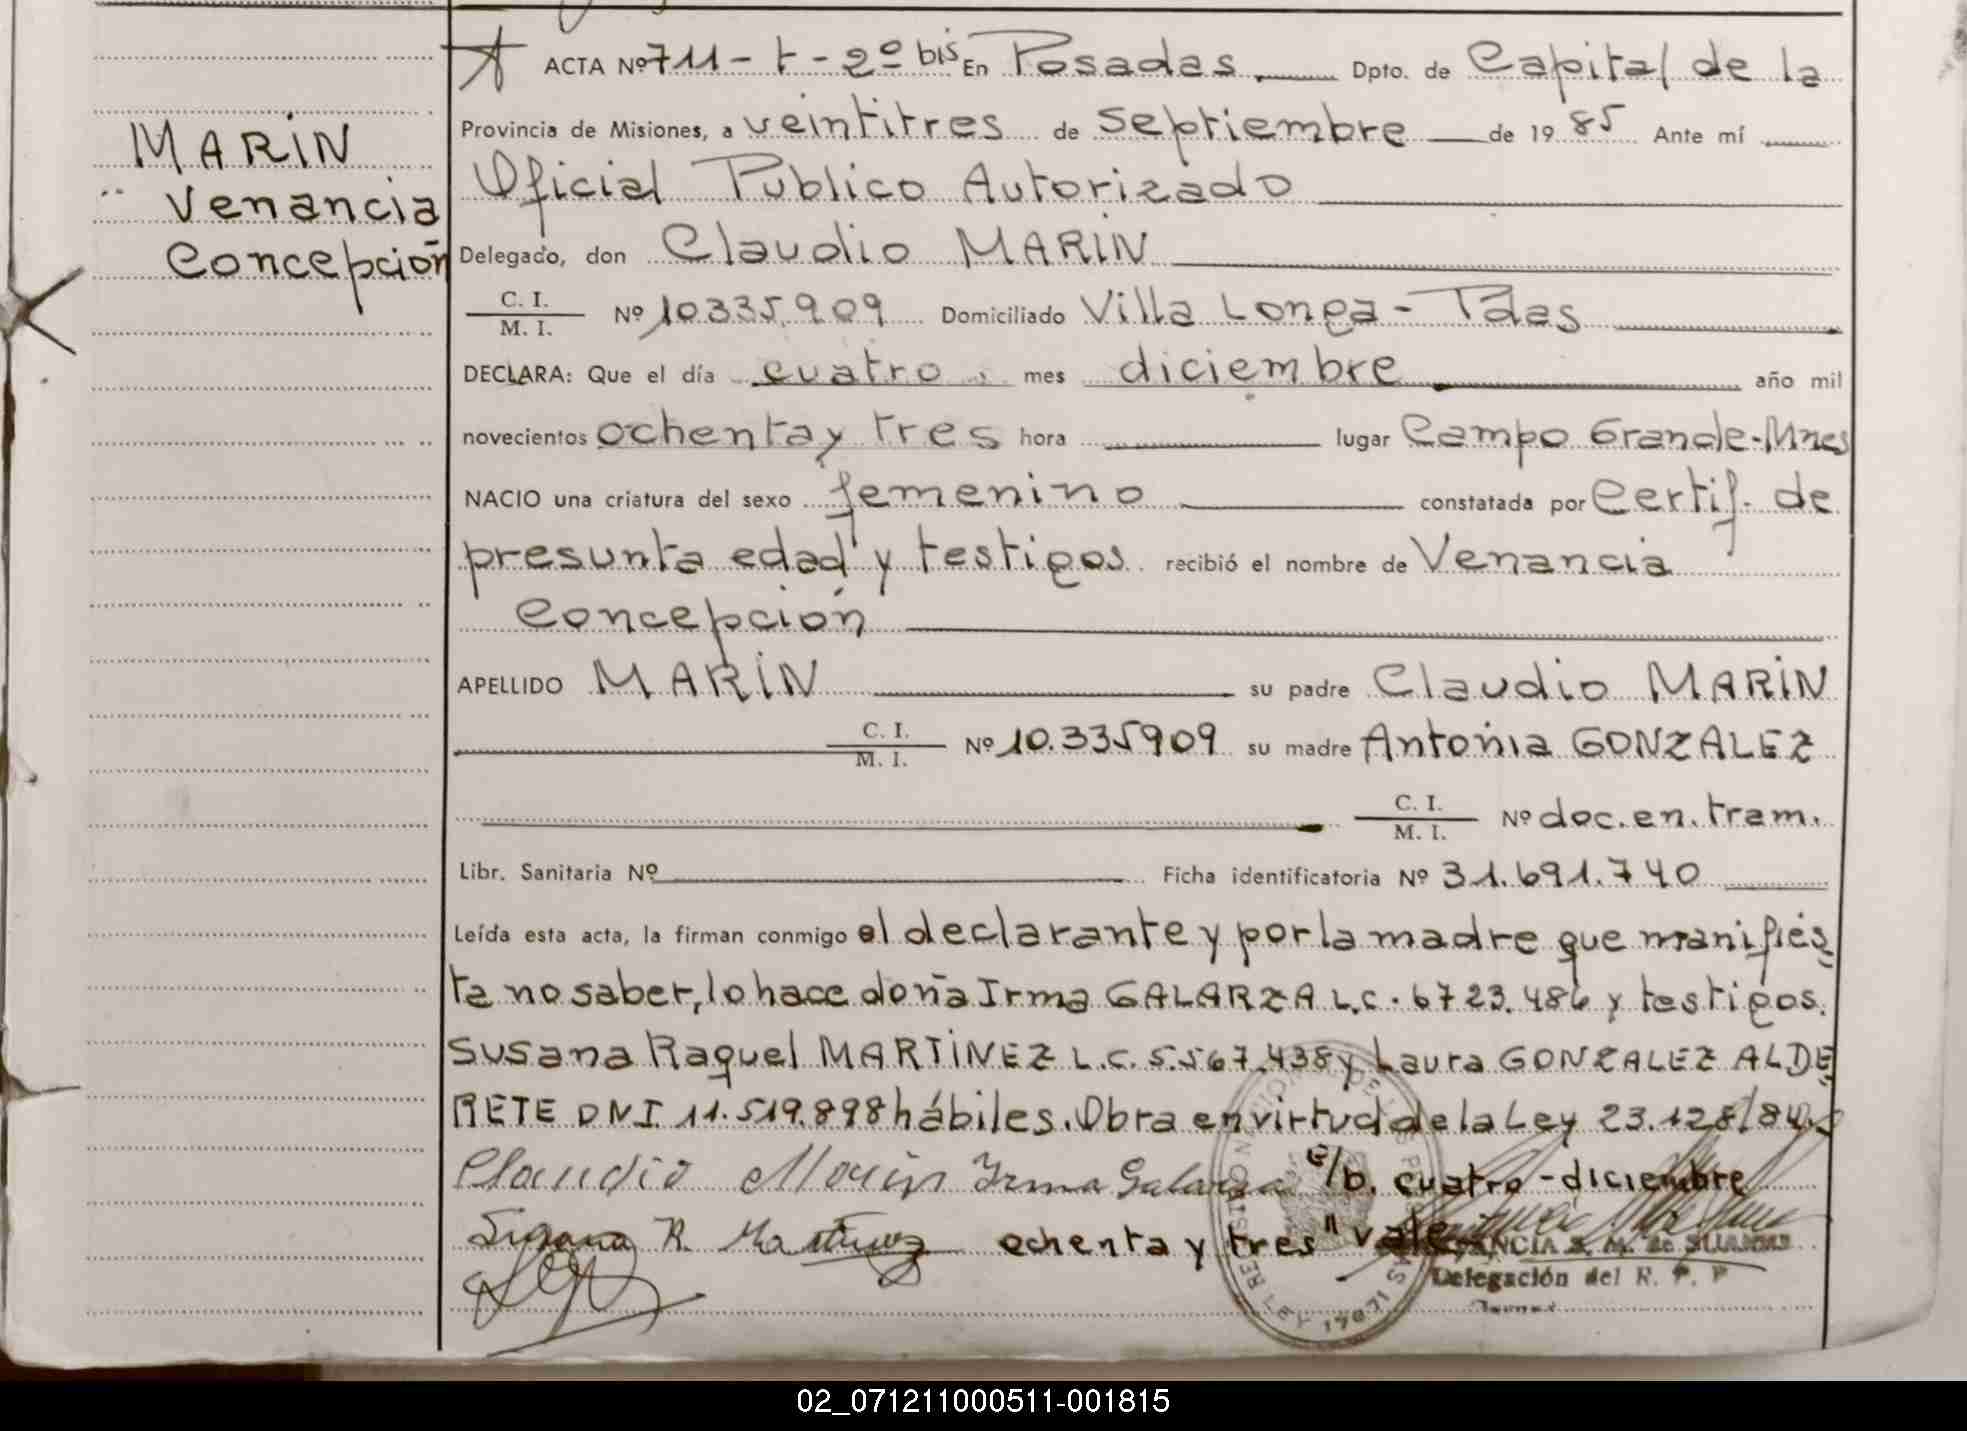 ACTA Nº 711-t-2º bis En Posadas. Dpto. de Capital de la
MARIN
Venancia
Concepción
Provincia de Misiones, a veintitres de Septiembre de 19 85 Ante mí
Oficial Publico Autorizado
Delegado, don Claudio MARIN
C. I.
M. I. Nº 10.335.909 Domiciliado Villa Longa - Pdas
DECLARA: Que el día cuatro mes diciembre año mil
novecientos ochenta y tres hora lugar Campo Grande-Mnes
NACIO una criatura del sexo femenino constatada por Certif. de
presunta edad y testigos recibió el nombre de Venancia
Concepción
APELLIDO MARIN su padre Claudio MARIN
C. I.
M. I. Nº 10.335909 su madre Antonia GONZALEZ
C. I.
M. I. Nº doc.en.tram.
Libr. Sanitaria Nº Ficha identificatoria Nº 31.691.740
Leída esta acta, la firman conmigo el declarante y por la madre que manifies
ta no saber, lo hace doña Irma GALARZA L.C. 6723.486 y testigos.
Susana Raquel MARTINEZ L.C. 5.567.438 y Laura GONZALEZ ALDE
RETE DNI. 11.519.898 hábiles. Obra en virtud de la Ley 23.128/84.
Claudio Marin Irma Galarza E/b. cuatro - diciembre
Susana R. Martinez ochenta y tres" vale
Delegación del R. P. P
02_071211000511-001815